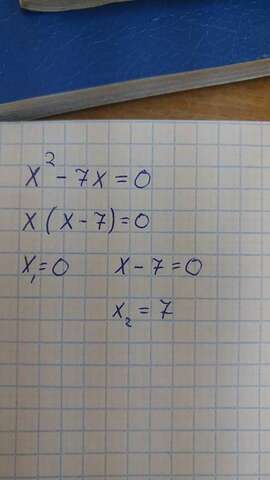 x² - 7x = 0
x (x - 7) = 0
x₁ = 0 x - 7 = 0
x₂ = 7